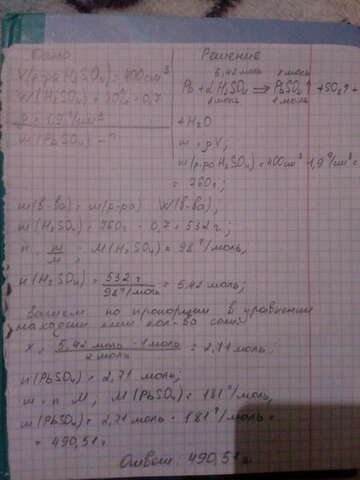 Дано
V(р-ра H₂SO₄) = 400 см³
W(H₂SO₄) = 70% = 0,7
ρ = 1,9 г/см³
m(PbSO₄) - ?
Решение
5,42 моль x моль
Pb + 2H₂SO₄ ⇒ PbSO₄↑ + SO₂↑ +
2 моль 1 моль
+ H₂O
m = ρV,
m(р-ра H₂SO₄) = 400 см³ · 1,9 г/см³ =
= 760 г;
m(в-ва) = m(р-ра) · W(в-ва);
m(H₂SO₄) = 760 г · 0,7 = 532 г;
n = m/M; M(H₂SO₄) = 98 г/моль,
n(H₂SO₄) = 532 г/98 г/моль = 5,42 моль;
по пропорции в уравнении
находим кол-во соли:
x = 5,42 моль · 1 моль/2 моль = 2,71 моль;
n(PbSO₄) = 2,71 моль;
m = n · M, M(PbSO₄) = 181 г/моль,
m(PbSO₄) = 2,71 моль · 181 г/моль =
= 490,51 г
Ответ: 490,51 г